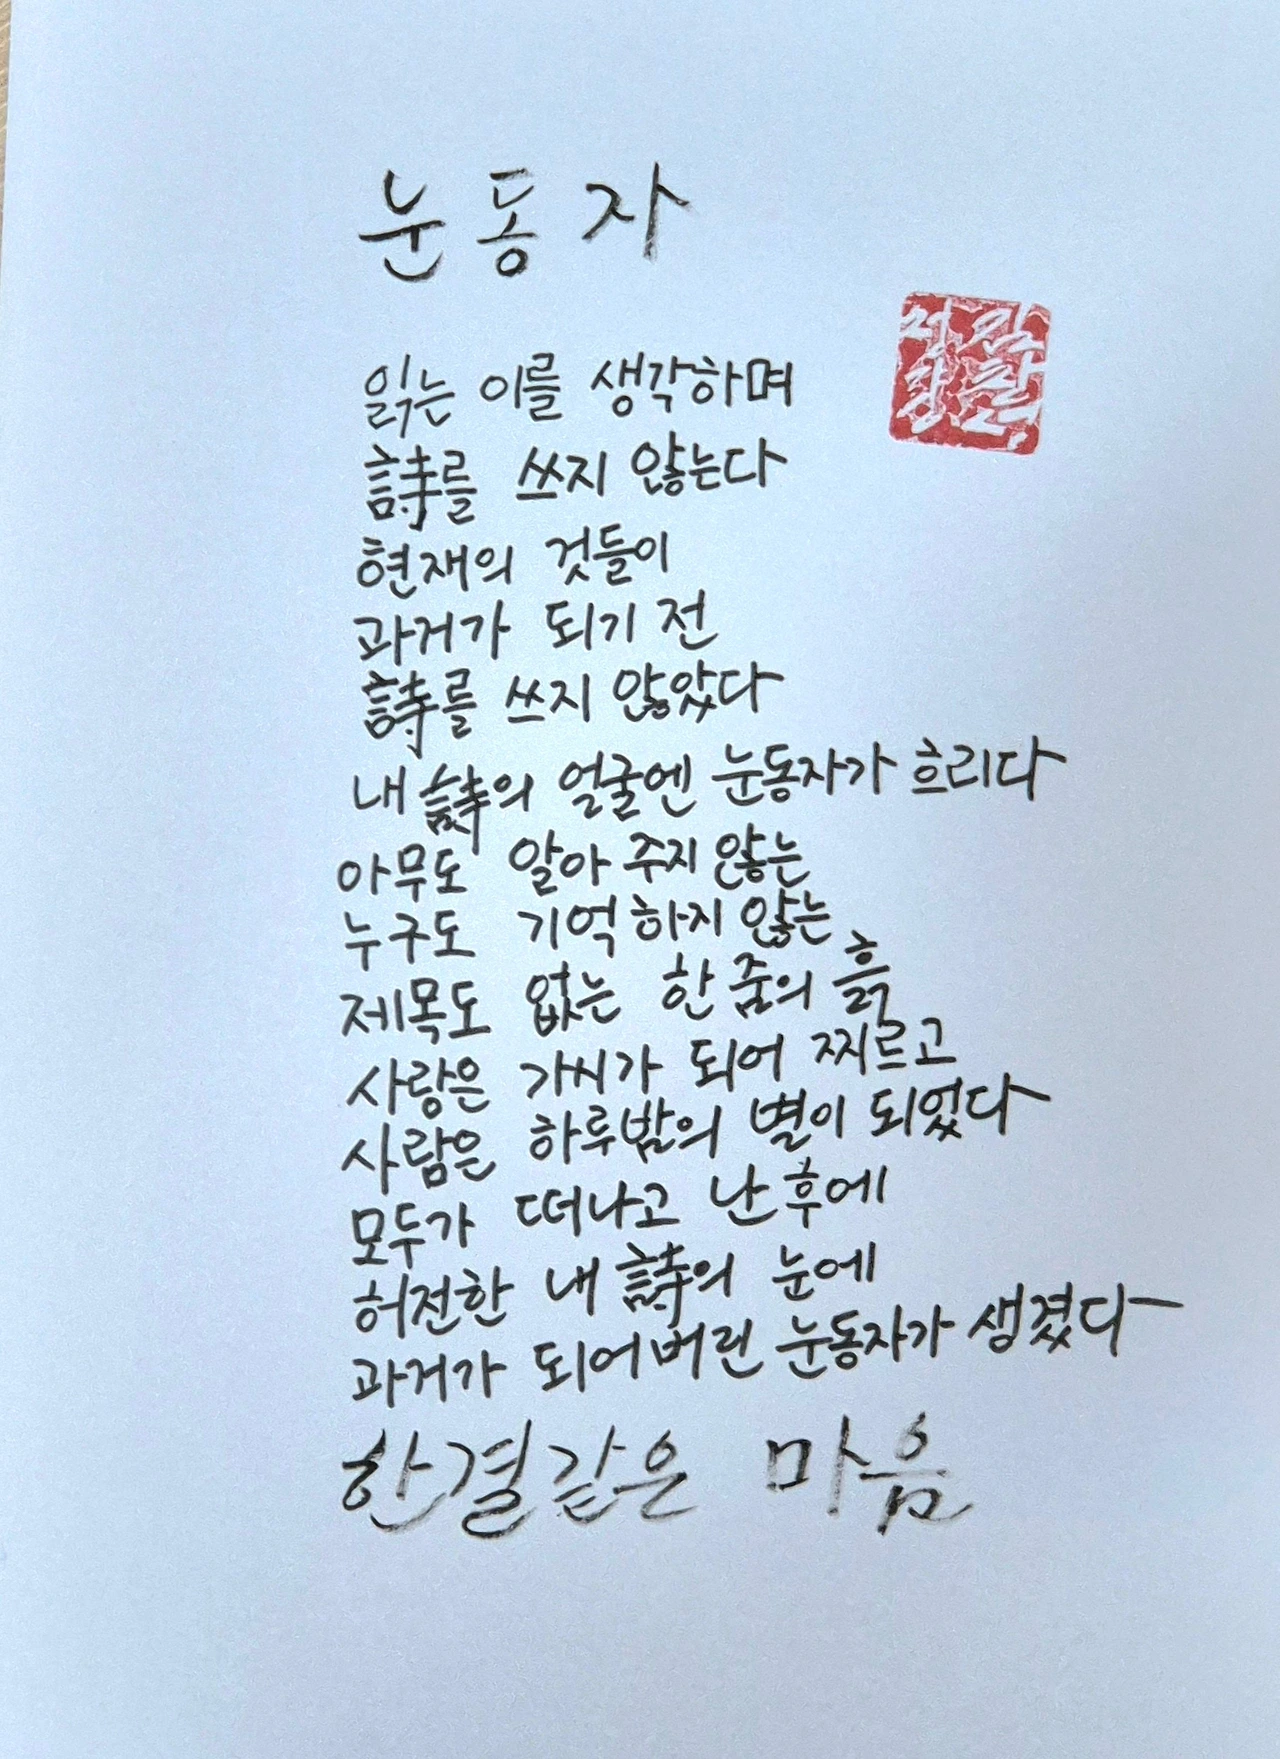 눈동자
읽는 이를 생각하며
詩를 쓰지 않는다
현재의 것들이
과거가 되기 전
詩를 쓰지 않았다
내 詩의 얼굴엔 눈동자가 흐리다
아무도 알아 주지 않는
누구도 기억하지 않는
제목도 없는 한 줌의 흙
사랑은 가시가 되어 찌르고
사람은 하루밤의 별이 되었다
모두가 떠나고 난 후에
허전한 내 詩의 눈에
과거가 되어버린 눈동자가 생겼다
한결같은 마음